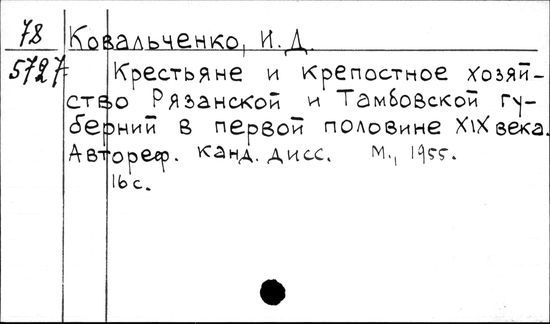 78 Ковальченко, И. Д.
5727 Крестьяне и крепостное хозяй-
ство Рязанской и Тамбовской гу-
берний в первой половине XIX века.
Автореф. канд. дисс. М., 1955.
16 с.